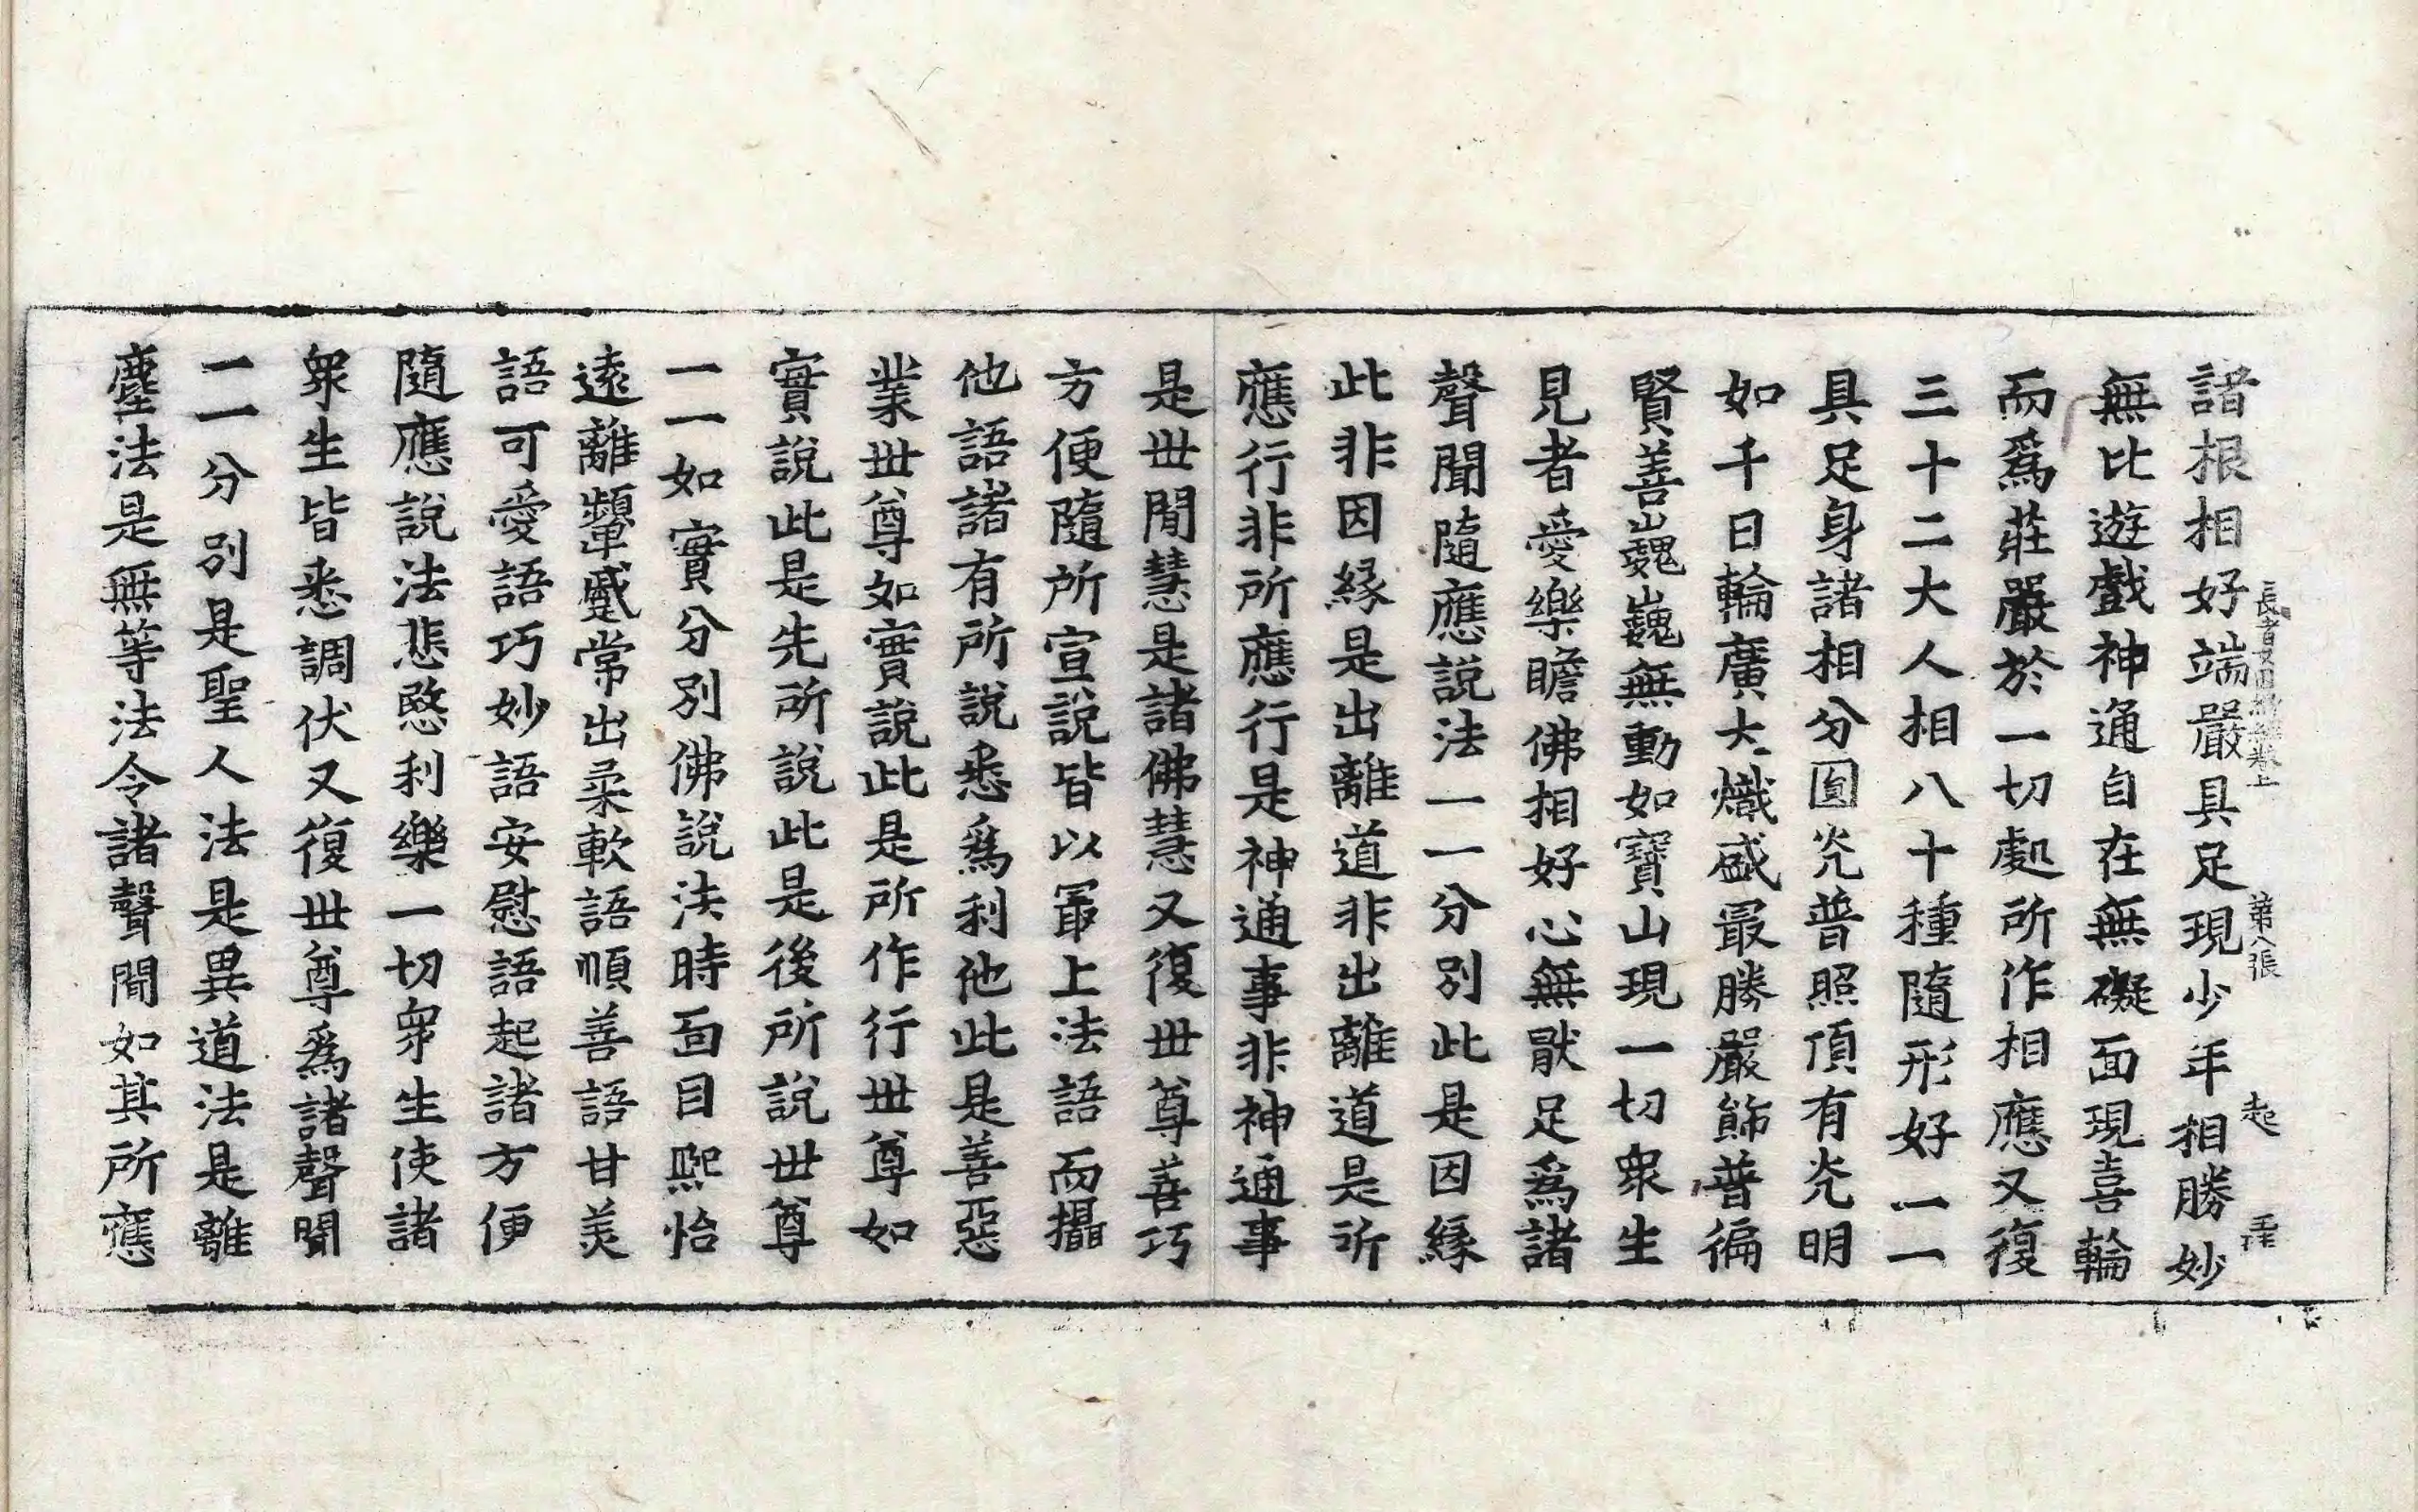 諸根相好端嚴具足現少年相勝妙
無比遊戲神通自在無礙面現喜輪
而爲莊嚴於一切處所作相應又復
三十二大人相八十種隨形好一一
具足身諸相分圓光普照頂有光明
如千日輪廣大熾盛最勝嚴飾普徧
賢善巍巍無動如寶山現一切衆生
見者愛樂瞻佛相好心無猒足爲諸
聲聞隨應說法一一分別此是因緣
此非因緣是出離道非出離道是所
應行非所應行是神通事非神通事
是世閒慧是諸佛慧又復世尊善巧
方便隨所宣說皆以最上法語而攝
他語諸有所說悉爲利他此是善惡
業世尊如實說此是所作行世尊如
實說此是先所說此是後所說世尊
一一如實分別佛說法時面目熙怡
遠離顰蹙常出柔軟語順善語甘美
語可愛語巧妙語安慰語起諸方便
隨應說法悲愍利樂一切衆生使諸
衆生皆悉調伏又復世尊爲諸聲聞
一一分別是聖人法是異道法是離
塵法是無等法令諸聲聞如其所應
長者 經卷上 第八張 起